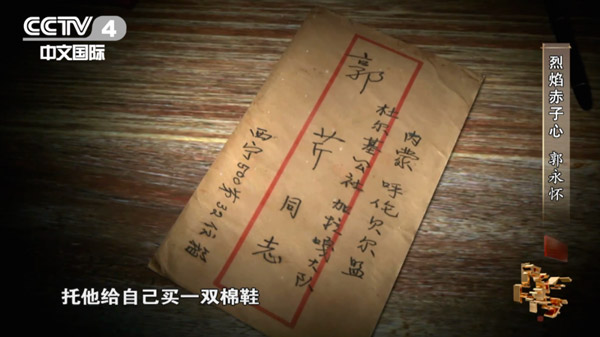 CCTV 4
中文国际
烈焰赤子心 郭永怀
内蒙 呼伦贝尔盟
杜尔基公社 加拉嘎大队
郭 芹 同志
西宁500号32信箱
托他给自己买一双棉鞋